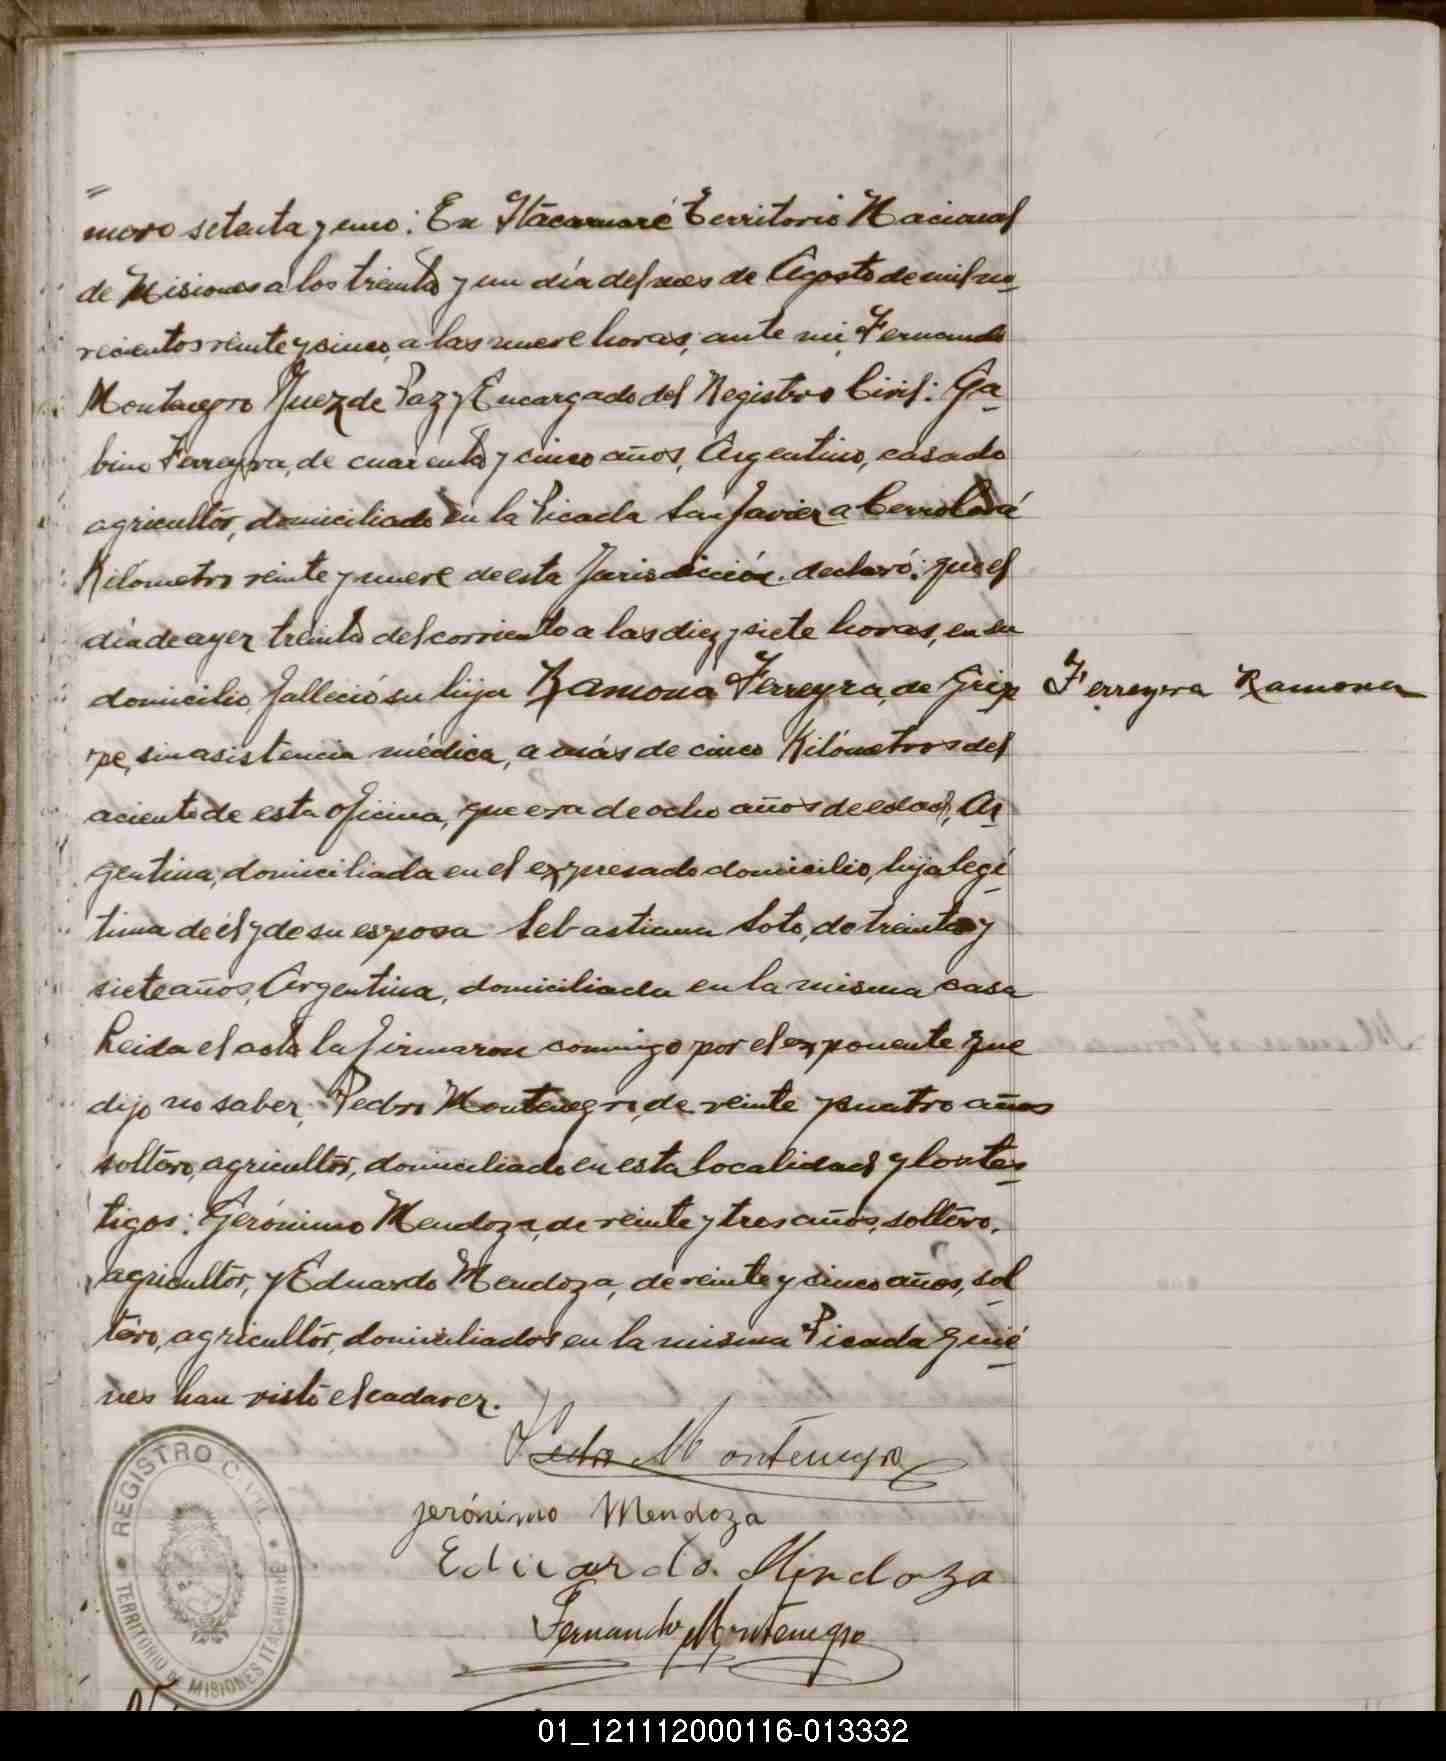 =
mero setenta y uno: En Itacaruaré Territorio Nacional
de Misiones a los treinta y un día del mes de Agosto de mil no-
vecientos veinte y cinco, a las nueve horas, ante mi, Fernando
Montenegro Juez de Paz y Encargado del Registro Civil: Ga-
bino Ferreyra, de cuarenta y cinco años, Argentino, casado
agricultor, domiciliado en la Picada San Javier a Cerro Corá
Kilómetro veinte y nueve de esta Jurisdicción, declaró: que el
día de ayer treinta del corriente a las diez y siete horas, en su
domicilio, falleció su hija Ramona Ferreyra, de Grip
Ferreyra Ramona
pe, sin asistencia médica, a más de cinco Kilómetros del
aciento de esta oficina, que era de ocho años de edad, Ar-
gentina, domiciliada en el expresado domicilio, hija legí-
tima de él y de su esposa Sebastiana Soto, de treinta y
siete años, Argentina, domiciliada en la misma casa
Leida el acta la firmaron conmigo por el exponente que
dijo no saber, Pedro Montenegro, de veinte y cuatro años
soltero, agricultor, domiciliado en esta localidad y los tes-
tigos: Gerónimo Mendoza, de veinte y tres años, soltero,
agricultor, y Eduardo Mendoza, de veinte y cinco años, sol-
tero, agricultor, domiciliados en la misma Picada quié-
nes han visto el cadaver.
Pedro Montenegro
jerónimo Mendoza
Eduardo. Mendoza
Fernando Montenegro
REGISTRO CIVIL
TERRITORIO DE MISIONES ITACARUARE
01_121112000116-013332